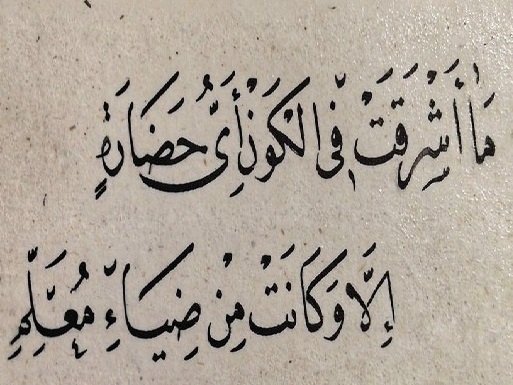 مَا أَشْرَقَتْ فِي الْكَوْنِ أَيُّ حَضَارَةٍ
إِلَّا وَكَانَتْ مِنْ ضِيَاءِ مُعَلِّمِ